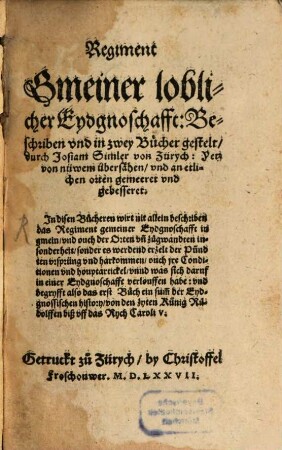 Regiment
Gmeiner lobli⸗
cher Eydgnoschafft: Be⸗
schriben vnd in zwey Bücher gestelt/
durch Josiam Simler von Zürych: Yetz
von nüwem übersähen/ vnd an etli⸗
chen orten gemeeret vnd
gebesseret.
In disen Bücheren wirt nit allein beschriben
das Regiment gemeiner Eydgnoschafft in
gmein/ vnd ouch der Orten vñ zůgwandten in⸗
sonderheit/ sonder es werdend erzelt der Pündt
ten vrsprung vnd härkommen/ ouch jre Condi⸗
tionen vnd houptartickel/ vnnd was sich daruf
in einer Eydgnoschafft verlouffen habe: vnd
begryfft also das erst Bůch ein sum̃ der Eyd⸗
gnossischen history/ von den zyten Künig Rů⸗
dolffen biß vff das Rych Caroli v.
Getruckt zů Zürych/ by Christoffel
Froschouwer. M. D. LXXVII.